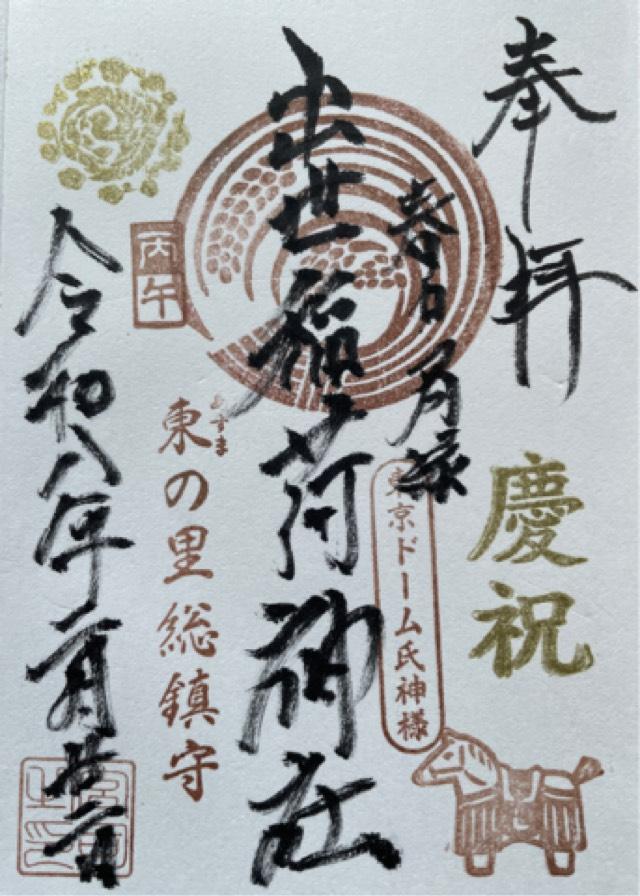 奉拝
慶祝
春日局縁
東京ドーム氏神様
出世稲荷神社
あずま
東の里総鎮守
丙午
令和八年二月